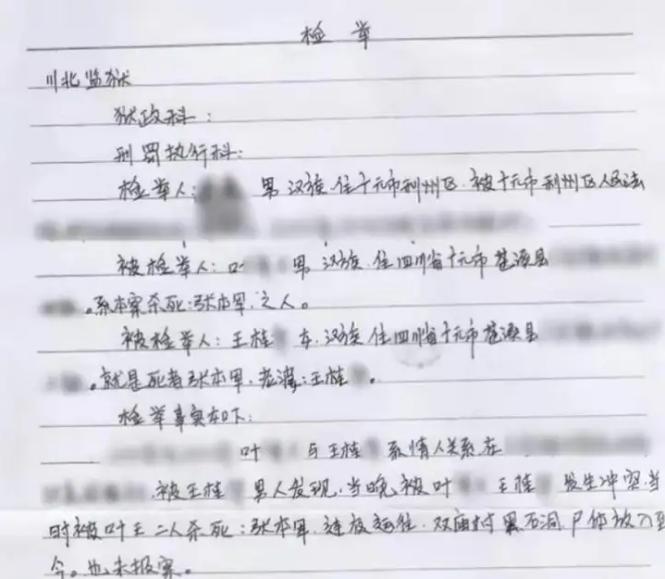 检举
川北监狱
狱政科：
刑罚执行科：
检举人： 男 汉族.住广元市利州区.被广元市利州区人民法
被检举人：叶 男 汉族.住四川省广元市苍溪县
。系本案杀死：张本军.之人。
被检举人：王桂 女.汉族.住四川省广元市苍溪县
。就是死者张本军.老婆：王桂 。
检举事实如下：
叶 与王桂 系情人关系在
.被王桂 男人发现.当晚.被叶 王桂 发生冲突.当
时被叶王二人杀死：张本军. 双庙村黑石洞.尸体放入至
今。也未报案。